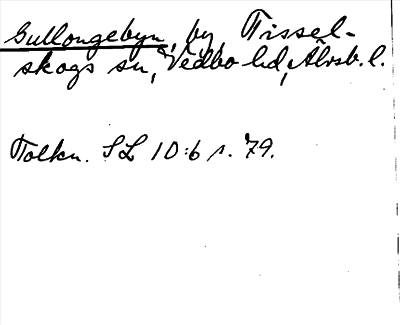 Gullongebyn, by Tissel-
skogs sn, Vedbo hd, Älvsb. l.
Tolkn. SL 10:6 s. 79.